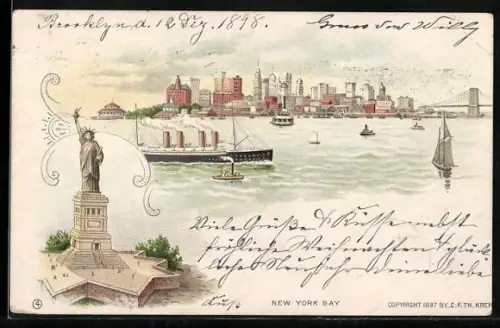 Brooklyn d. 12 Dez. 1898. Gruss von Willy
Viele Grüße & Küsse nebst
fröhliche Weihnachten & glück
liche Neujahr deine liebe
④ NEW YORK BAY COPYRIGHT 1897 BY E.F.TH. KREH